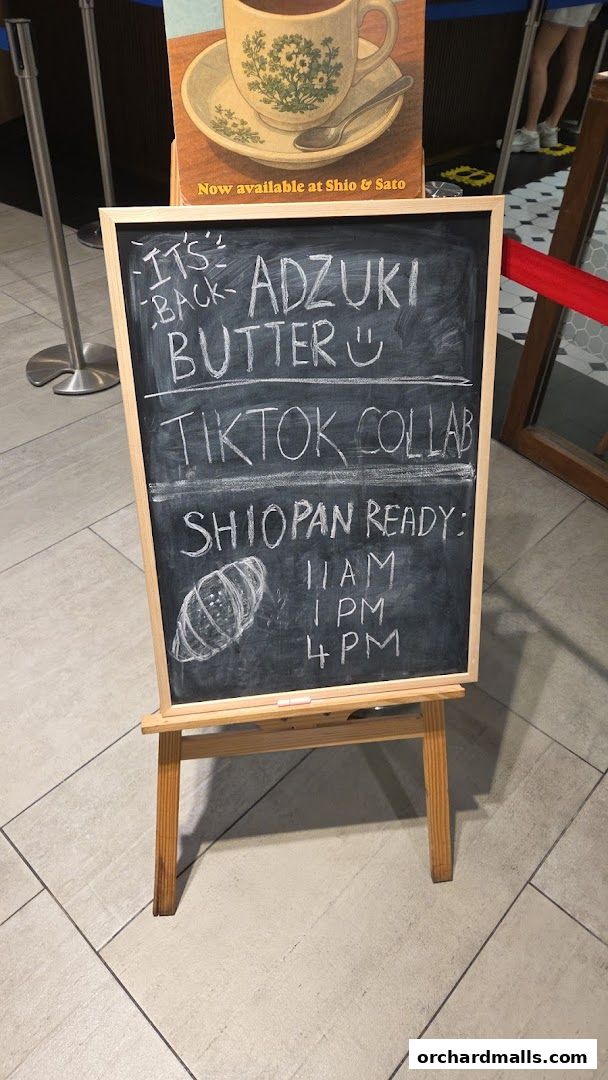 Now available at Shio & Sato
IT'S
BACK
ADZUKI
BUTTER
TIKTOK COLLAB
SHIOPAN READY:
11 AM
1 PM
4 PM
orchardmalls.com